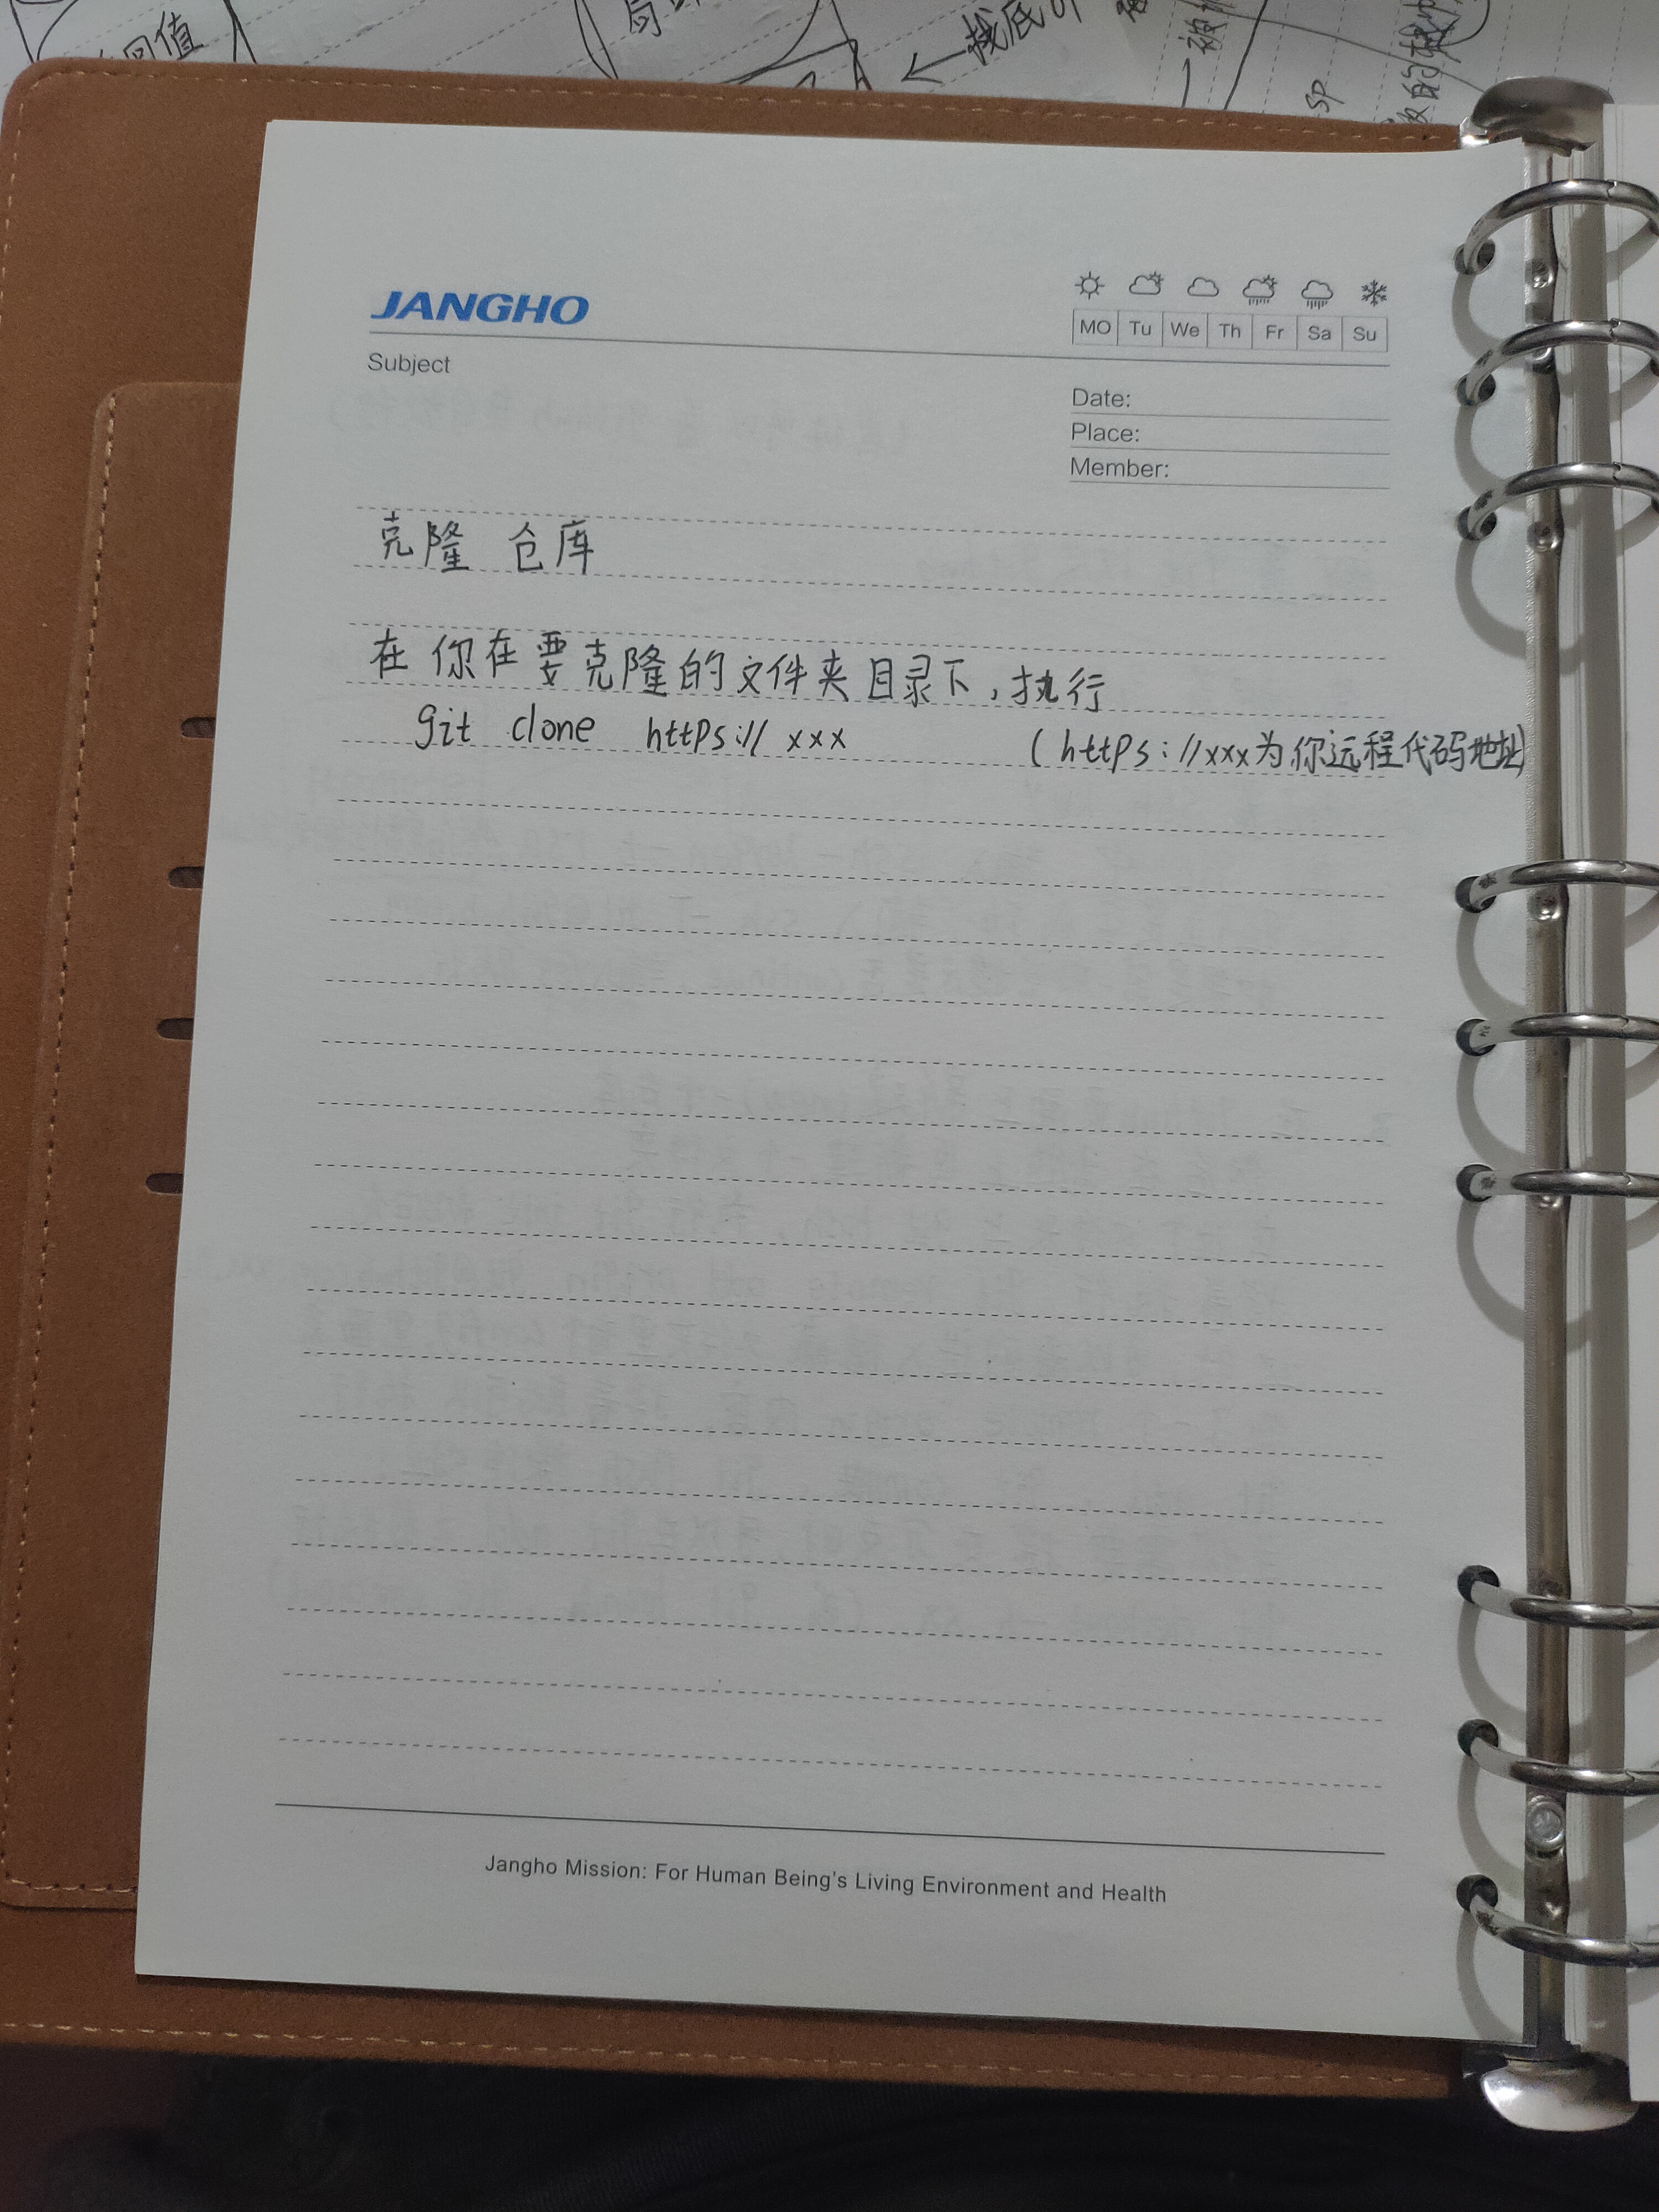 回值
栈底
SP
JANGHO
MO Tu We Th Fr Sa Su
Subject
Date:
Place:
Member:
克隆 仓库
在你在要克隆的文件夹目录下,执行
git clone https:// xxx (https://xxx为你远程代码地址)
Jangho Mission: For Human Being's Living Environment and Health